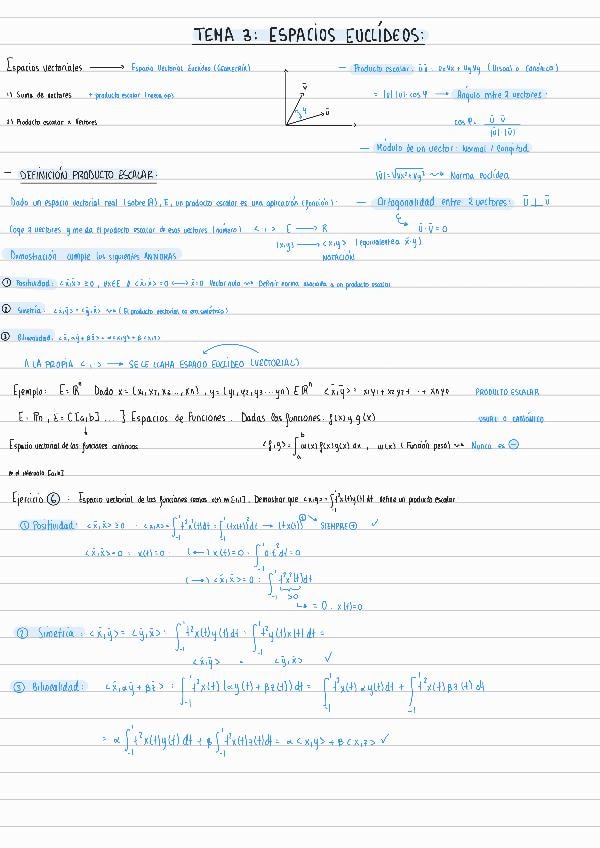 TEMA 3: ESPACIOS EUCLÍDEOS:
Espacios vectoriales ⟶ Espacio Vectorial Euclídeo (GEOMETRÍA)
1) Suma de vectores + producto escalar (nueva op)
2) Producto escalar x Vectores
v̄
φ
ū
— Producto escalar: ū·v̄ = UxVx + UyVy (Usual o Canónico)
= |u|·|v|·cosφ ⟶ Ángulo entre 2 vectores:
cosφ = ū·v̄ / |ū|·|v̄|
— Módulo de un vector: Normal / Longitud
|v̄| = √Vx²+Vy² ⟿ Norma euclídea
— Ortogonalidad entre 2 vectores: ū ⊥ v̄
ū·v̄ = 0
— DEFINICIÓN PRODUCTO ESCALAR:
Dado un espacio vectorial real (sobre ℝ), E, un producto escalar es una aplicación (función):
Coge 2 vectores y me da el producto escalar de esos vectores (número) < , > E ⟶ ℝ
(x,y) ⟶ <x,y> (equivalente a x̄·y)
NOTACIÓN
Demostración cumple los siguientes AXIOMAS
① Positividad: <x̄,x̄> ≥ 0, ∀x̄∈E ∧ <x̄,x̄> = 0 ⟷ x̄=0 Vector nulo ⟿ Definir norma asociada a un producto escalar
② Simetría: <x̄,ȳ> = <ȳ,x̄> ⟿ (El producto vectorial no era simétrico)
③ Bilinealidad: <x̄,αȳ+βz̄> = α<x,y> + β<x,z>
A LA PROPIA < , > ⟶ SE LE LLAMA ESPACIO EUCLÍDEO (VECTORIAL)
Ejemplo: E=ℝⁿ Dado x = (x₁, x₂, x₃..., xn), y = (y₁, y₂, y₃... yn) ∈ ℝⁿ <x̄,ȳ> = x₁y₁ + x₂y₂ + ... + xnyn PRODUCTO ESCALAR
E = Pn, E = C[a,b] ...] Espacios de funciones. Dadas las funciones: f(x) y g(x) USUAL O CANÓNICO
Espacio vectorial de las funciones continuas <f,g> = ∫ₐᵇ w(x) f(x) g(x) dx, w(x) (Función peso) ⟿ Nunca es ⊖
en el intervalo [a,b]
Ejercicio ⑥: Espacio vectorial de las funciones conti. con en [-1,1]. Demostrar que <x,y> = ∫₋₁¹ t²x(t)y(t)dt define un producto escalar
① Positividad: <x̄,x̄> ≥ 0 · <x,x> = ∫₋₁¹ t²x²(t)dt = ∫₋₁¹ (tx(t))²dt ⟶ (tx(t))² ↘ SIEMPRE ⊕ ✓
<x̄,x̄> = 0 : x(t) = 0 · (⟵) x(t) = 0 · ∫₋₁¹ 0·t²dt = 0
(⟶) <x̄,x̄> = 0 : ∫₋₁¹ t²x²(t)dt
≥0
↳ = 0 · x(t) = 0
② Simetría: <x̄,ȳ> = <ȳ,x̄> · ∫₋₁¹ t²x(t)y(t)dt · ∫₋₁¹ t²y(t)x(t)dt =
<x̄,ȳ> = <ȳ,x̄> ✓
③ Bilinealidad: <x̄,αȳ+βz̄> : ∫₋₁¹ t²x(t)(αy(t)+βz(t))dt = ∫₋₁¹ t²x(t)αy(t)dt + ∫₋₁¹ t²x(t)βz(t)dt
= α∫₋₁¹ t²x(t)y(t)dt + β∫₋₁¹ t²x(t)z(t)dt = α<x,y> + β<x,z> ✓